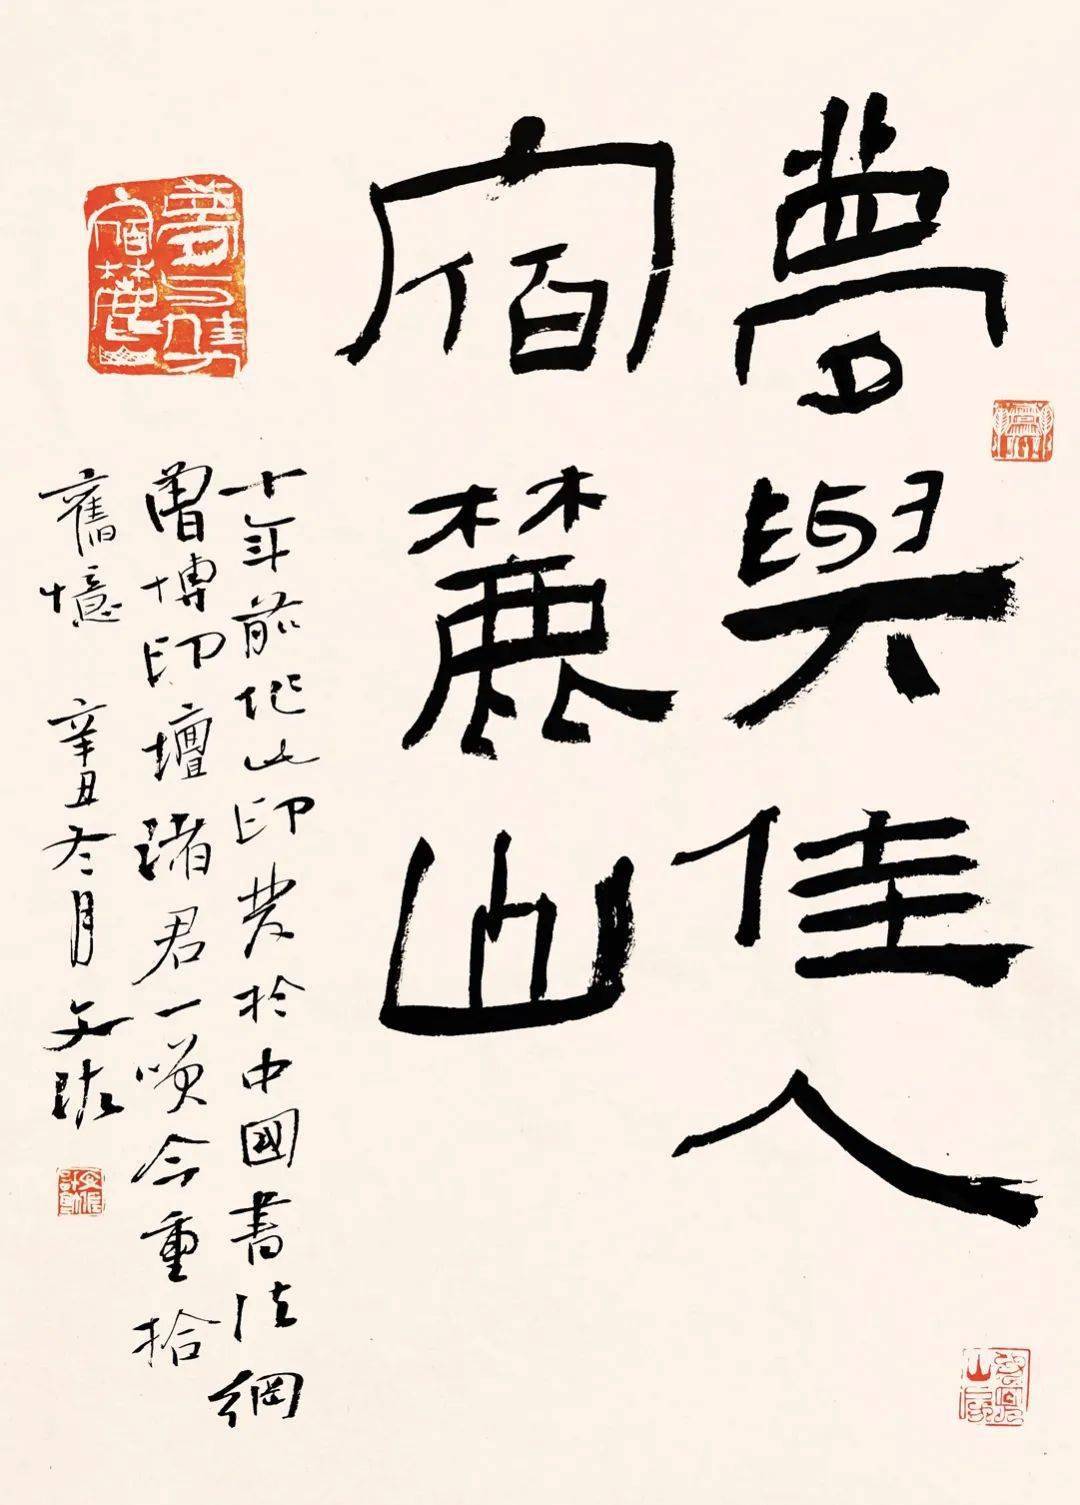 夢與佳人
宿麓山
夢與佳人
宿麓山
十年前作此印發於中國書法網
曾博印壇諸君一噗今重拾
舊憶 辛丑冬月 文